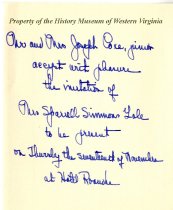 Property of the History Museum of Western Virginia
Mr and Mrs Joseph junior
accept with pleasure
the invitation of
Mrs Simmons
to be present
on Thursday the seventeenth of November
at Hotel Roanoke